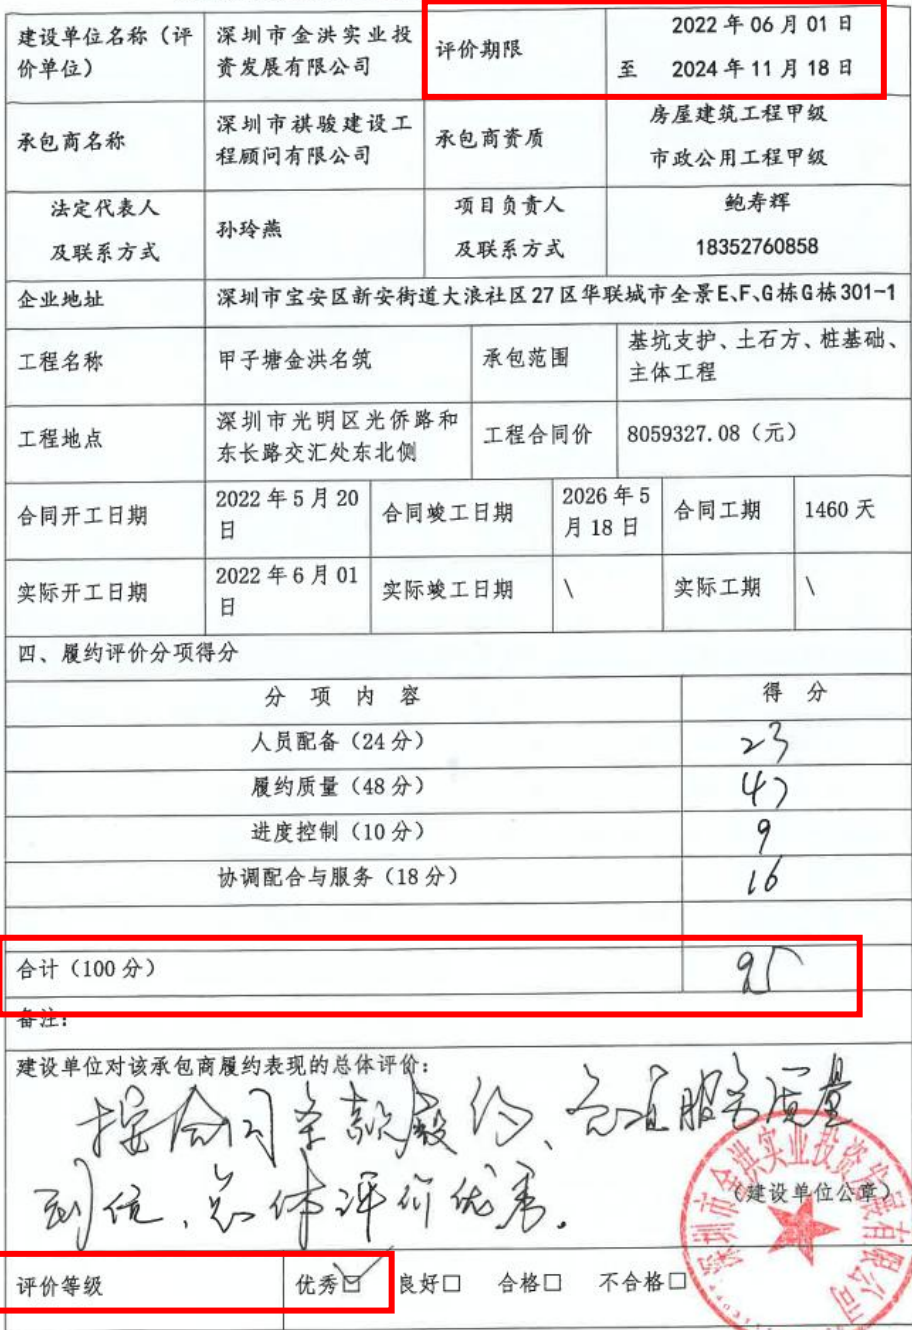 建设单位名称（评 深圳市金洪实业投 评价期限 2022年06月01日
价单位） 资发展有限公司 至 2024年11月18日
承包商名称 深圳市祺骏建设工 承包商资质 房屋建筑工程甲级
程顾问有限公司 市政公用工程甲级
法定代表人 孙玲燕 项目负责人 鲍寿辉
及联系方式 及联系方式 18352760858
企业地址 深圳市宝安区新安街道大浪社区27区华联城市全景E、F、G栋G栋301-1
工程名称 甲子塘金洪名筑 承包范围 基坑支护、土石方、桩基础、
主体工程
工程地点 深圳市光明区光侨路和 工程合同价 8059327.08（元）
东长路交汇处东北侧
合同开工日期 2022年5月20 合同竣工日期 2026年5 合同工期 1460天
日 月18日
实际开工日期 2022年6月01 实际竣工日期 \ 实际工期 \
日
四、履约评价分项得分
分 项 内 容 得 分
人员配备（24分） 23
履约质量（48分） 47
进度控制（10分） 9
协调配合与服务（18分） 16
合计（100分） 95
备注：
建设单位对该承包商履约表现的总体评价：
按合同条款履约、各项服务质量
到位、总体评价优秀。
（建设单位公章）
深圳市金洪实业投资发展有限公司
评价等级 优秀☑ 良好□ 合格□ 不合格□